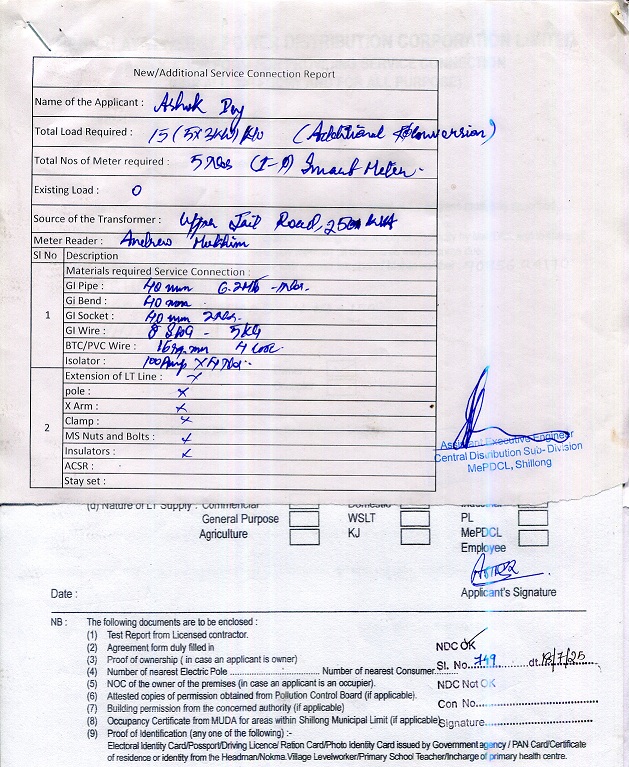 New/Additional Service Connection Report
Name of the Applicant : Ashok Dey
Total Load Required : 15 (5x3kw) kw (Additional Conversion)
Total Nos of Meter required : 5 Nos (1-Ø) Smart Meter.
Existing Load : 0
Source of the Transformer : Upper Jail Road, 250 KVA
Meter Reader : Andrew Mukhim
Sl No Description
Materials required Service Connection :
1
GI Pipe : 40 mm 6.2Mtr
Gi Bend : 40 mm
GI Socket : 40 mm 2Nos.
GI Wire : 8 SWG - 5 KG
BTC/PVC Wire : 16 sq.mm 4 Core.
Isolator : 100Amp X 4 Nos.
2
Extension of LT Line : x
pole : x
X Arm : x
Clamp : x
MS Nuts and Bolts : x
Insulators : x
ACSR :
Stay set :
Assistant Executive Engineer
Central Distribution Sub- Division
MePDCL, Shillong
(d) Nature of LT Supply : Commercial Domestic Industrial
General Purpose WSLT PL
Agriculture KJ MePDCL
Employee
Date : Applicant's Signature
NB : The following documents are to be enclosed :
(1) Test Report from Licensed contractor.
(2) Agreement form duly filled in
(3) Proof of ownership ( in case an applicant is owner)
(4) Number of nearest Electric Pole .............................. Number of nearest Consumer
(5) NOC of the owner of the premises (in case an applicant is an occupier).
(6) Attested copies of permission obtained from Pollution Control Board (if applicable).
(7) Building permission from the concerned authority (if applicable)
(8) Occupancy Certificate from MUDA for areas within Shillong Municipal Limit (if applicable)
(9) Proof of Identification (any one of the following) :-
Electoral Identity Card/Possport/Driving Licence/ Ration Card/Photo Identity Card issued by Government agency / PAN Card/Certificate
of residence or identity from the Headman/Nokma.Village Levelworker/Primary School Teacher/Incharge of primary health centre.
NDC OK
Sl. No. 749 dt. 18/7/25
NDC Not OK
Con No.
Signature